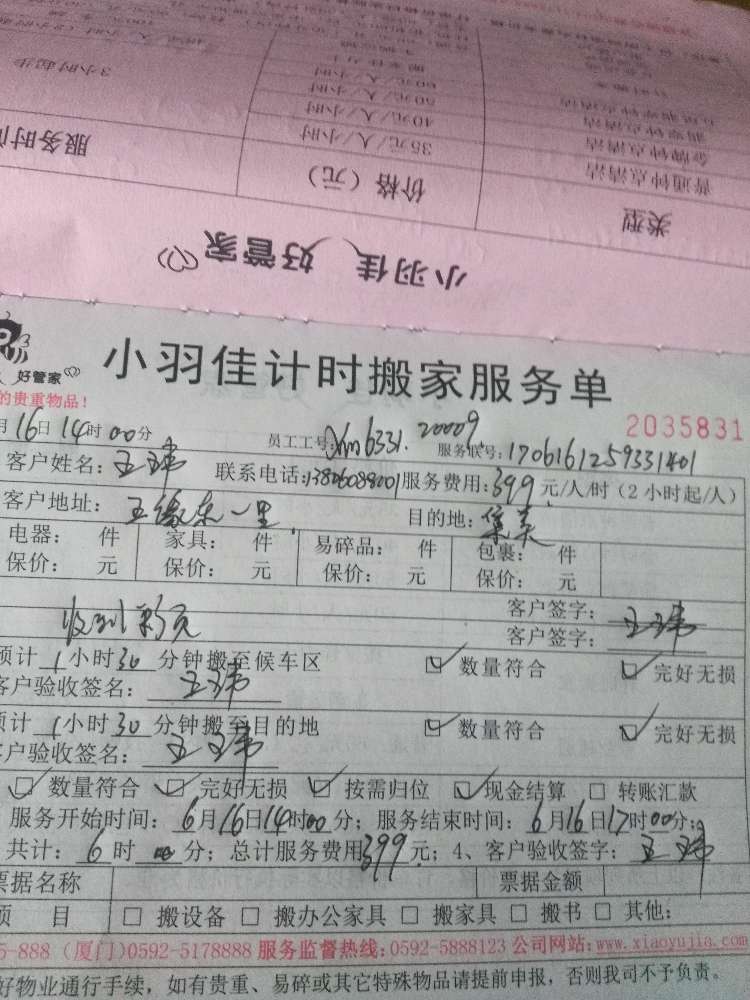 类型
价格（元）
服务时
普通钟点清洁
35元/人/小时
金牌钟点清洁
40元/人/小时
50元/人/小时
60元/人/小时
3小时起步
小羽佳 好管家
好管家
小羽佳计时搬家服务单
的贵重物品！
2035831
月16日14时00分
员工工号：Xm6331. 20009
服务联号：1706161259331401
客户姓名：王玮
联系电话：13806088001
服务费用：399元/人/时（2小时起/人）
客户地址：
东一里
目的地：集美
电器： 件 家具： 件 易碎品： 件 包裹： 件
保价： 元 保价： 元 保价： 元 保价： 元
客户签字：王玮
收到
客户签字：
预计1小时30分钟搬至候车区 数量符合 完好无损
客户验收签名：王玮
预计1小时30分钟搬至目的地 数量符合 完好无损
客户验收签名：王玮
数量符合 完好无损 按需归位 现金结算 转账汇款
服务开始时间：6月16日14时00分；服务结束时间：6月16日17时00分；
共计：6时 分；总计服务费用399元；4、客户验收签字：王玮
票据名称 票据金额
项 目 搬设备 搬办公家具 搬家具 搬书 其他：
5-888（厦门）0592-5178888 服务监督热线：0592-5888123 公司网站：www.xiaoyujia.com
好物业通行手续，如有贵重、易碎或其它特殊物品请提前申报，否则我司不予负责。